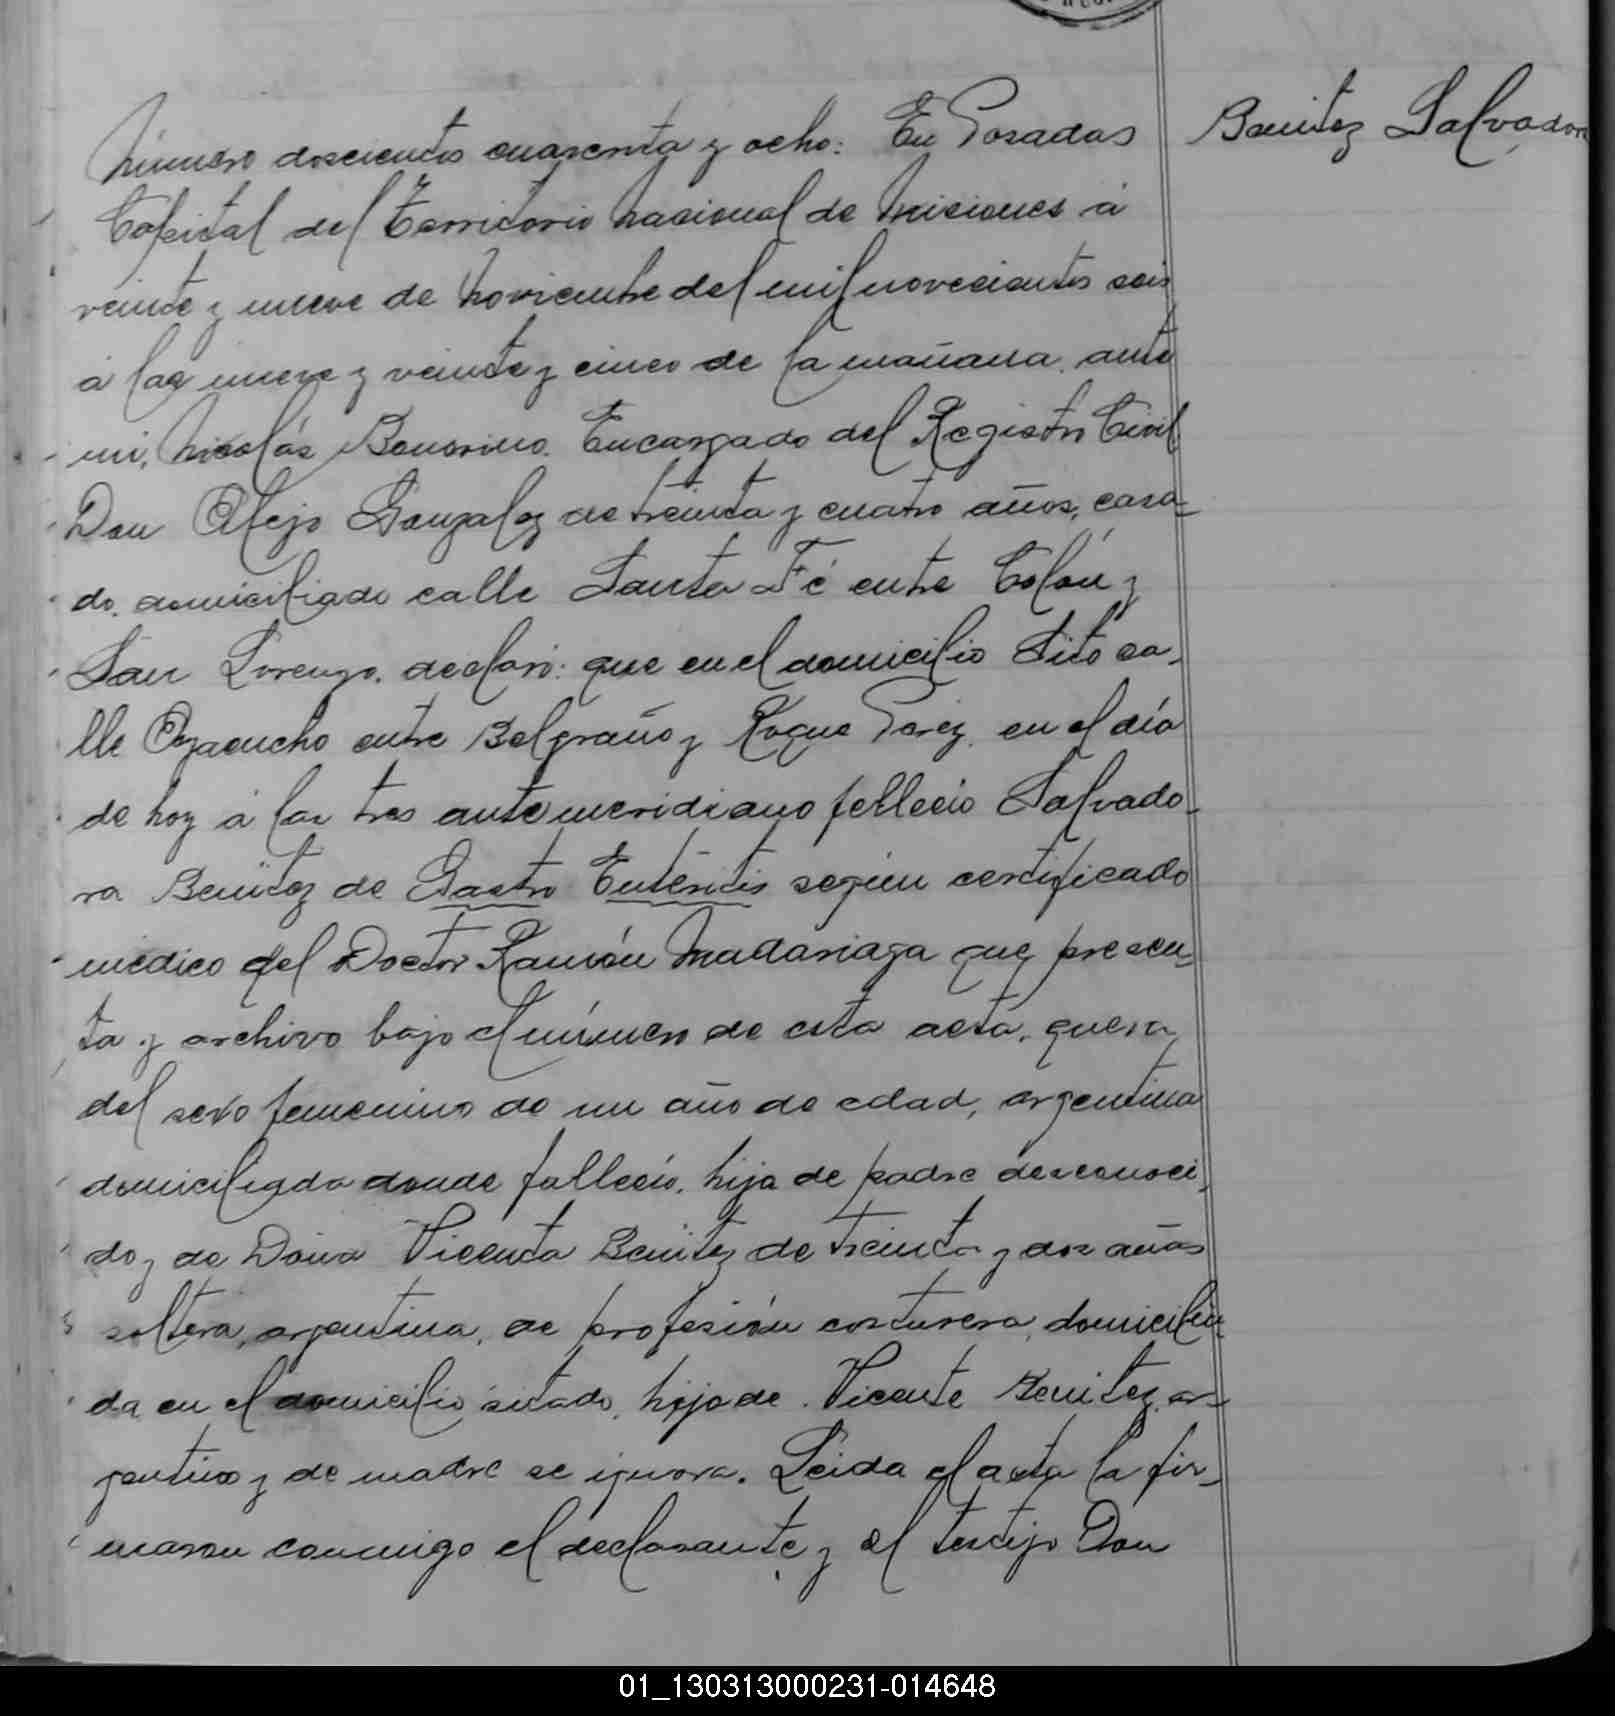 Número doscientos cuarenta y ocho: En Posadas
Benitez Salvadora
Capital del Territorio Nacional de Misiones á
veinte y nueve de Noviembre del mil novecientos seis
á las nueve y veinte y cinco de la mañana, ante
mi, Nicolás Bonorino. Encargado del Registro Civil
Don Alejo Gonzalez de treinta y cuatro años, casa-
do, domiciliado calle Santa Fé entre Colón y
San Lorenzo, declaró: que en el domicilio sito ca-
lle Ayacucho entre Belgrano y Roque Perez, en el día
de hoy á las tres antemeridiano felleció Salvado-
ra Benitez de Gastro Enteritis según certificado
médico del Doctor Ramón Madariaga que presen-
ta y archivo bajo el número de esta acta, que era
del sexo femenino de un año de edad, argentina
domiciliada donde falleció, hija de padre desconoci-
do y de Doña Vicenta Benitez de treinta y dos años
soltera, argentina, de profesión costurera, domicilia-
da en el domicilio sitado, hija de Vicente Benitez, ar-
gentino y de madre se ignora. Leida el acta la fir-
maron conmigo el declarante, y el testigo Don
01_130313000231-014648